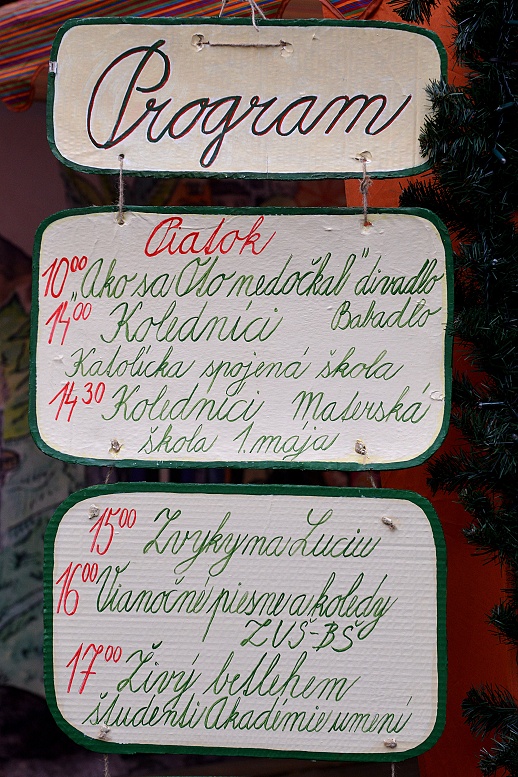 Program
Piatok
10⁰⁰ „Ako sa Oto nedočkal" divadlo
Babadlo
14⁰⁰ Koledníci
Katolícka spojená škola
14³⁰ Koledníci Materská
škola 1. mája
15⁰⁰ Zvyky na Luciu
16⁰⁰ Vianočné piesne a koledy
ZUŠ-BŠ
17⁰⁰ Živý betlehem
študenti Akadémie umení